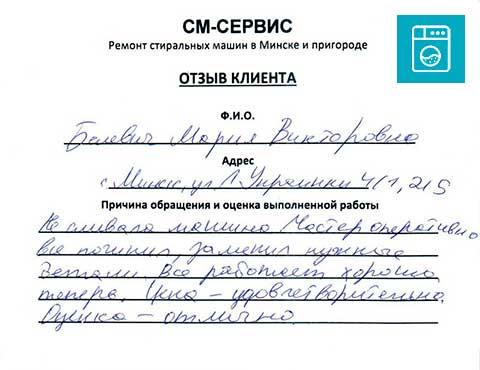 СМ-СЕРВИС
Ремонт стиральных машин в Минске и пригороде
ОТЗЫВ КЛИЕНТА
Ф.И.О.
Мария Викторовна
Адрес
г. Минск, ул. Л. Украинки 4/1, 215
Причина обращения и оценка выполненной работы
Не сливала машина Мастер оперативно
все починил, заменил нужные
детали. Все работает хорошо
теперь. Цена – удовлетворительно
Оценка – отлично